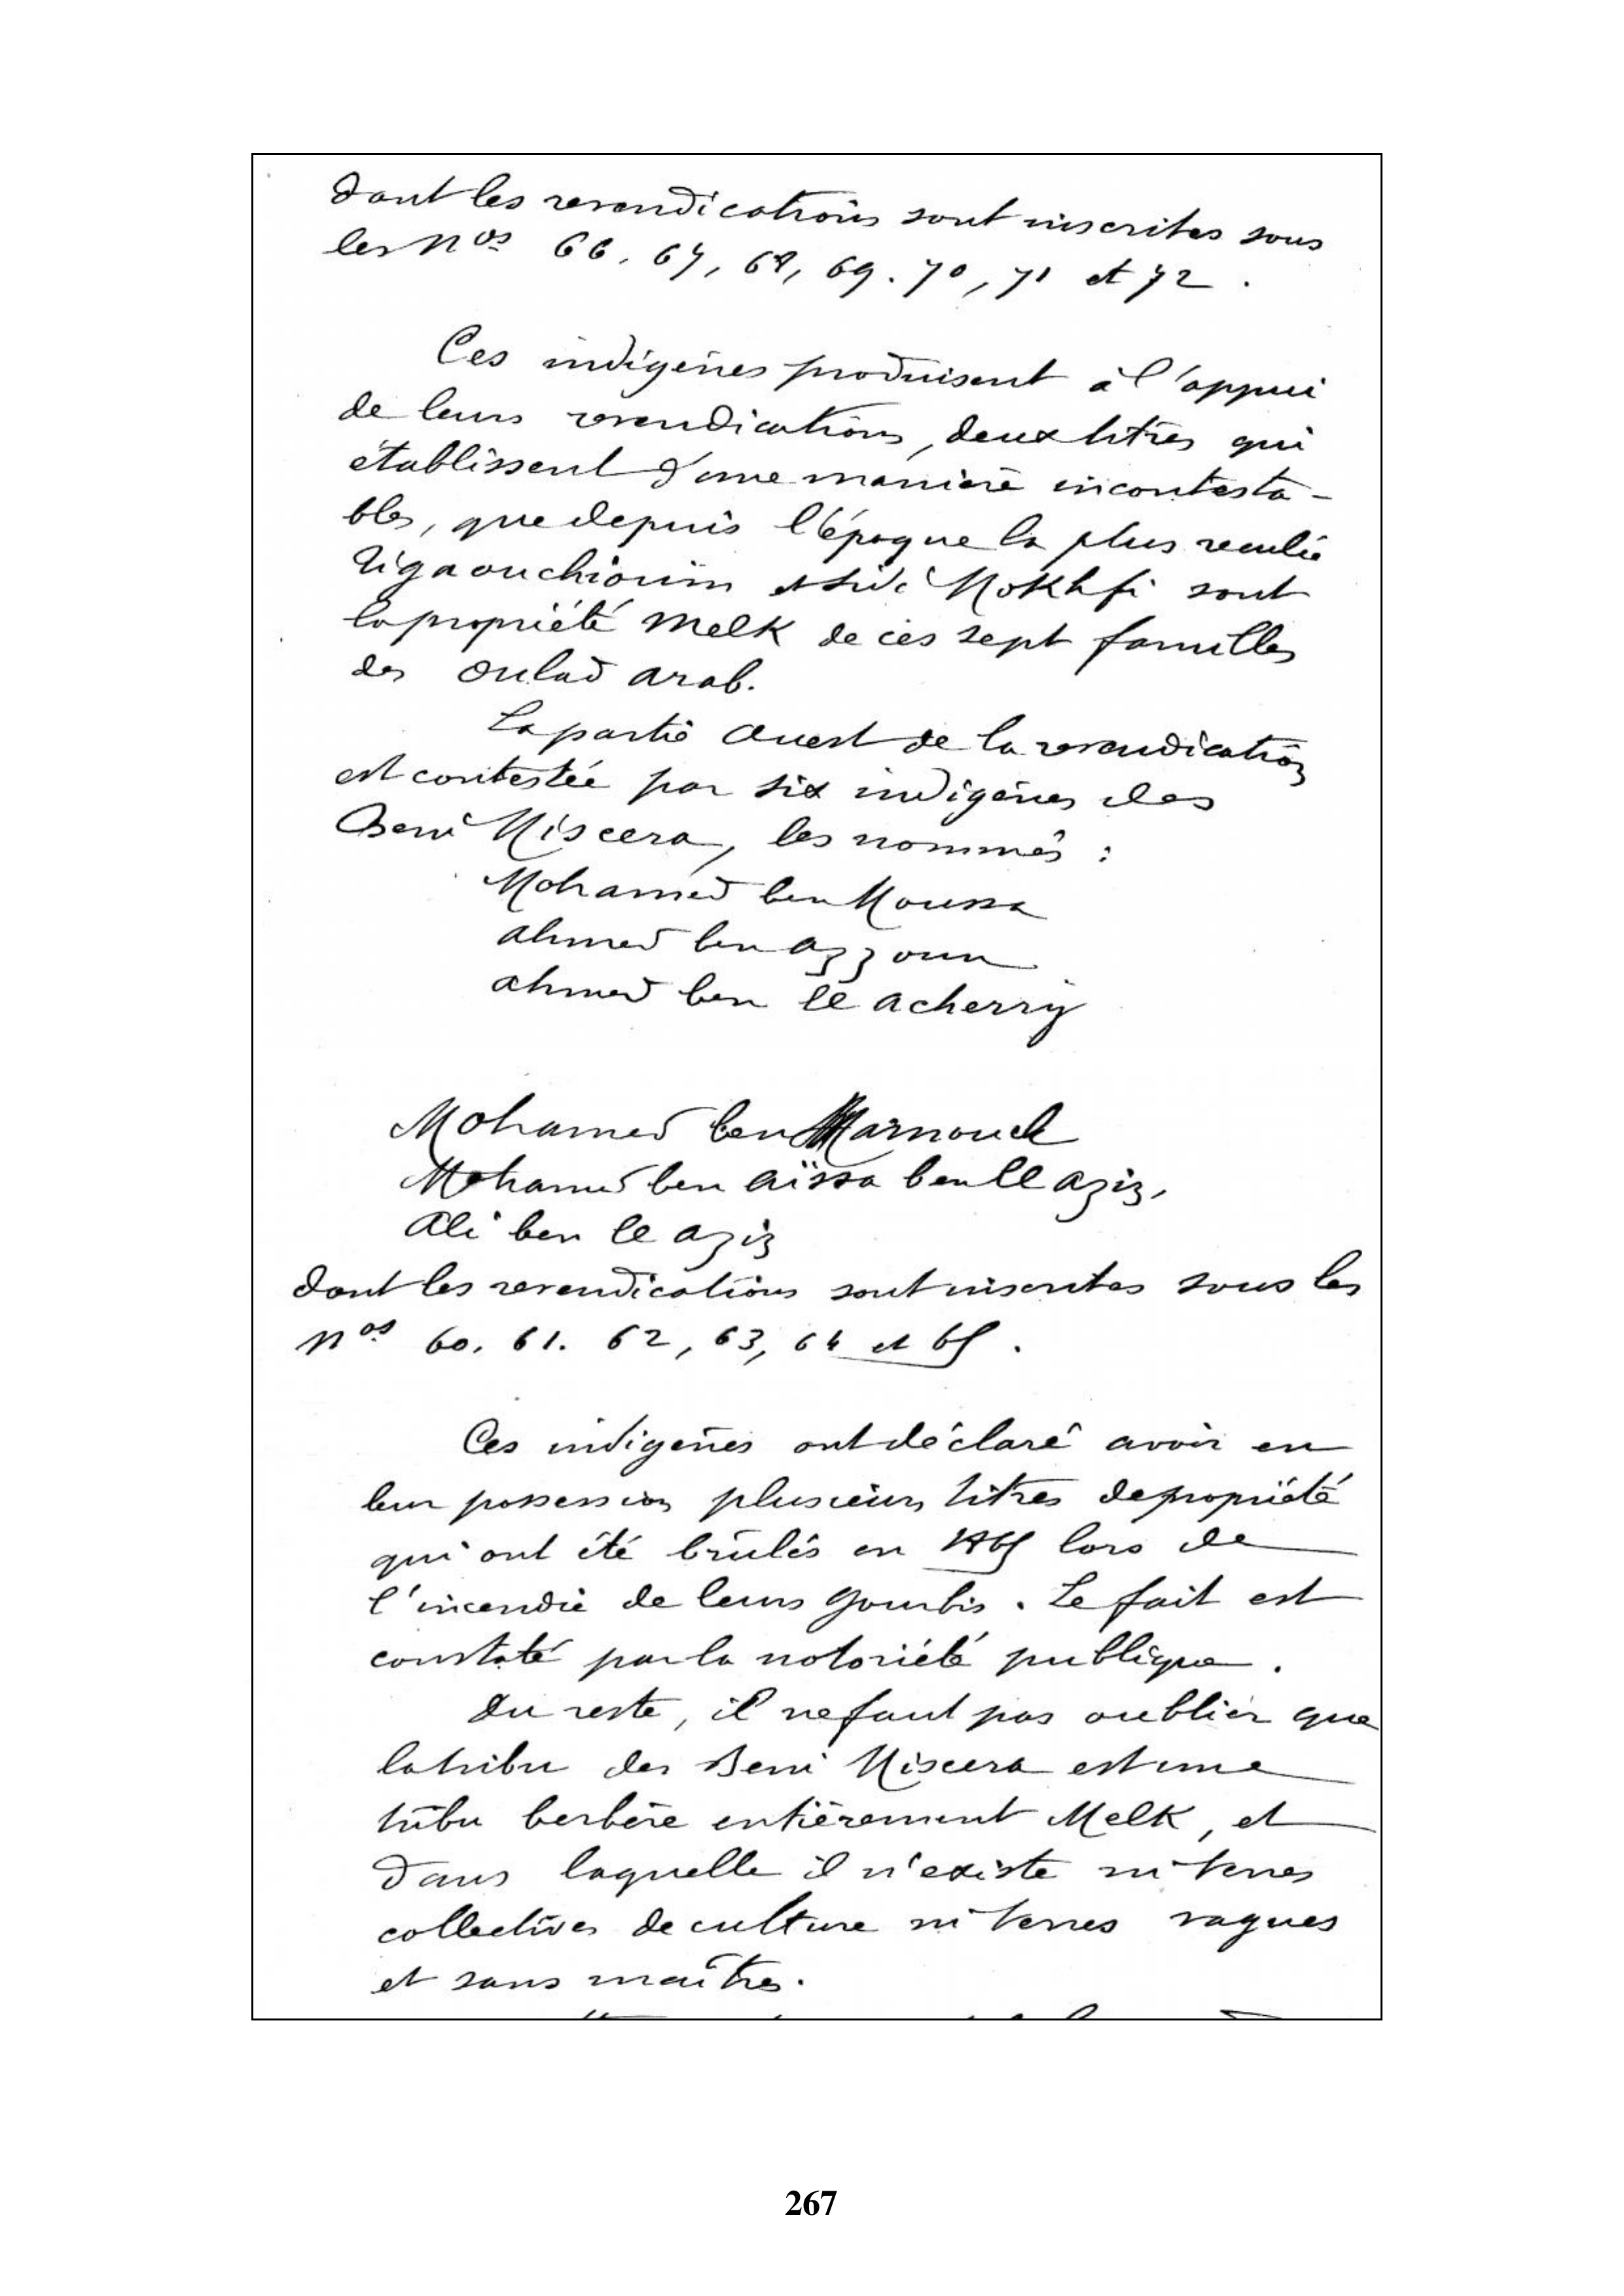 dont les revendications sont inscrites sous
les nos 66, 67, 68, 69. 70, 71 et 72.
Ces indigènes produisent à l'appui
de leurs revendications, deux titres qui
établissent d'une manière incontesta-
bles, que depuis l'époque la plus reculée
Tigaouchiouin et Sidi Mokhfi sont
la propriété Melk de ces sept familles
des Oulad Arab.
La partie Ouest de la revendication
est contestée par six indigènes des
Beni Miscera, les nommés :
Mohamed ben Moussa
Ahmed ben Azzoun
Ahmed ben el Acherry
Mohamed ben Marnouck
Mohamed ben Aïssa ben el Aziz,
Ali ben el Aziz
dont les revendications sont inscrites sous les
nos 60. 61. 62, 63, 64 et 65.
Ces indigènes ont déclaré avoir en
leur possession plusieurs titres de propriété
qui ont été brûlés en 1865 lors de
l'incendie de leurs gourbis. Le fait est
constaté par la notoriété publique.
Du reste, il ne faut pas oublier que
la tribu des Beni Miscera est une
tribu berbère entièrement Melk, et
dans laquelle il n'existe ni terres
collectives de culture ni terres vagues
et sans maîtres.
267